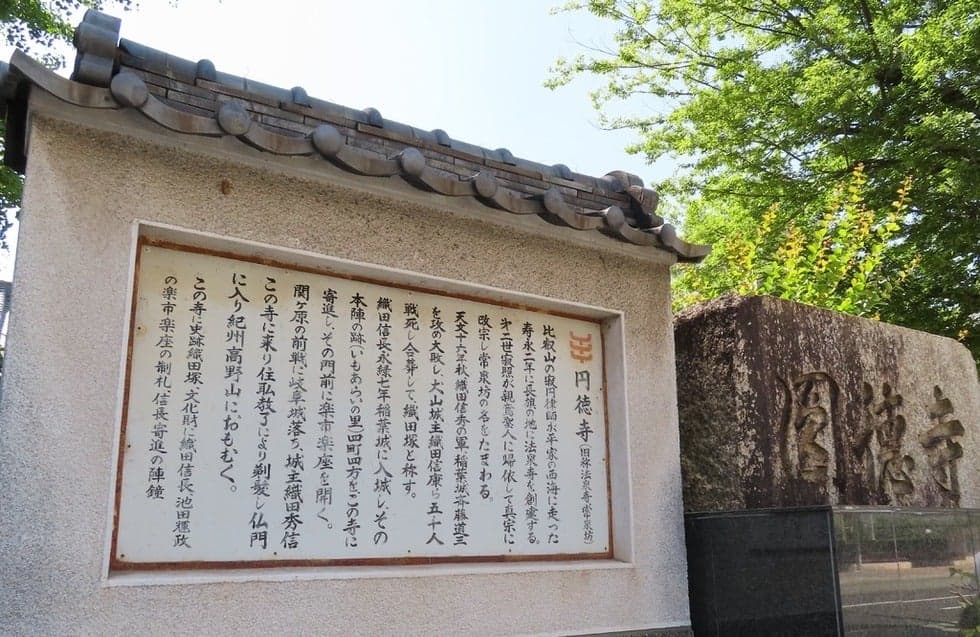 円徳寺(旧称法泉寺・常泉坊)
比叡山の寂円律師、水平家の西海に走った
寿永二年に長旗の地に法泉寺を創建する。
第二世寂照が親鸞聖人に帰依して真宗に
改宗し常泉坊の名をたまわる。
天文十六年秋、織田信秀の軍、稲葉城斉藤道三
を攻め大敗し、犬山城主織田信康ら五千人
戦死し合葬して、織田塚と称す。
織田信長永禄七年稲葉城に入城し、その
本陣の跡(いもあらいの里)四町四方をこの寺に
寄進し、その門前に楽市楽座を開く。
関ヶ原の前戦に岐阜城落ち、城主織田秀信
この寺に来り住弘敎了により剃髪し仏門
に入り紀州高野山におもむく。
この寺に史跡織田塚、文化財に織田信長、池田輝政
の楽市楽座の制札、信長寄進の陣鐘
圓徳寺